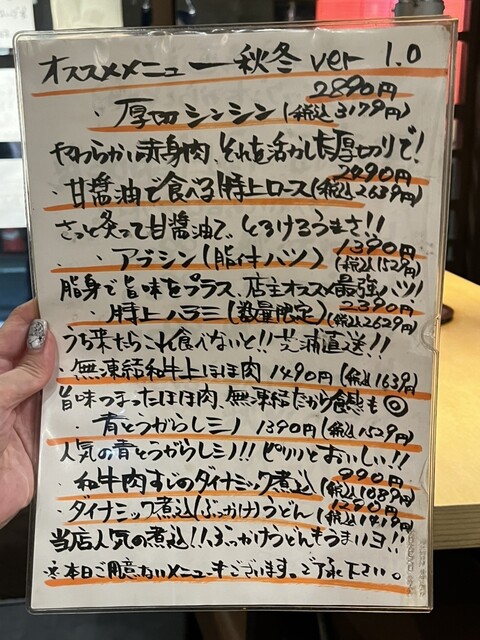 オススメメニュー 秋冬 ver 1.0
2890円
・厚切シンシン(税込3179円)
やわらかい赤身肉、それを活かした厚切りで!
2490円
・甘醤油で食べる特上ロース(税込2639円)
さっと炙って甘醤油で、とろけるうまさ!!
1390円
・アブシン(脂付ハツ)(税込1529円)
脂身で旨味をプラス、店主オススメ最強ハツ!
2390円
・特上ハラミ(数量限定)(税込2629円)
うち来たらこれ食べないと!!芝浦直送!!
・無凍結和牛上ほほ肉 1490円(税込1639円)
旨味つまったほほ肉、無凍結だから食感も◎
・青とうがらしミノ 1390円(税込1529円)
人気の青とうがらしミノ!!ピリッとおいしい!!
990円
・和牛肉すじのダイナミック煮込(税込1089円)
1290円
・ダイナミック煮込(ぶっかけ)うどん(税込1419円)
当店人気の煮込!!ぶっかけうどんもうまいヨ!!
※本日ご用意ないメニューもございます。ご了承下さい。